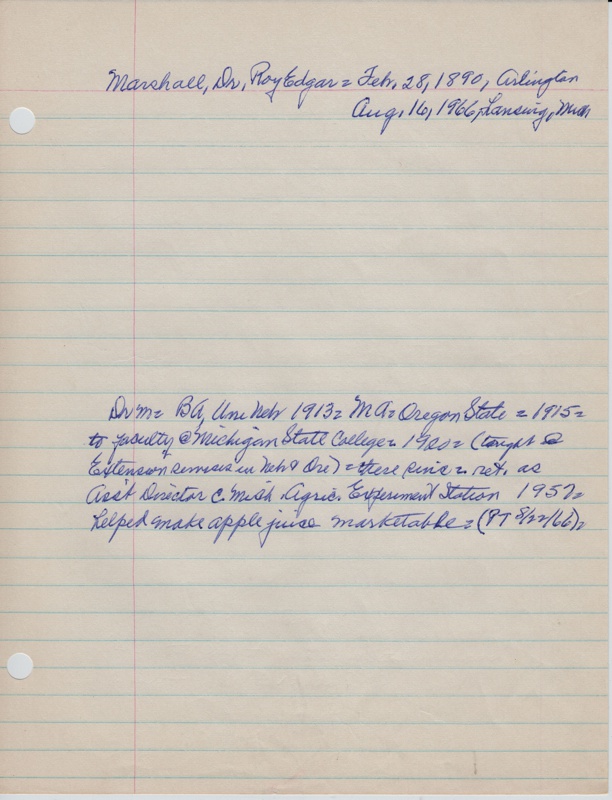 Marshall, Dr, Roy Edgar = Feb. 28, 1890, Arlington
Aug. 16, 1966, Lansing, Mich
Dr M = BA, Uni Neb 1913 = MA = Oregon State = 1915 =
to faculty @ Michigan State College = (taught
Extension services in Neb & Ore) = there since = ret. as
Ass't Director c Mich. Agric. Experiment Station 1957 =
helped make apple juice marketable = (PT 8/22/66) =